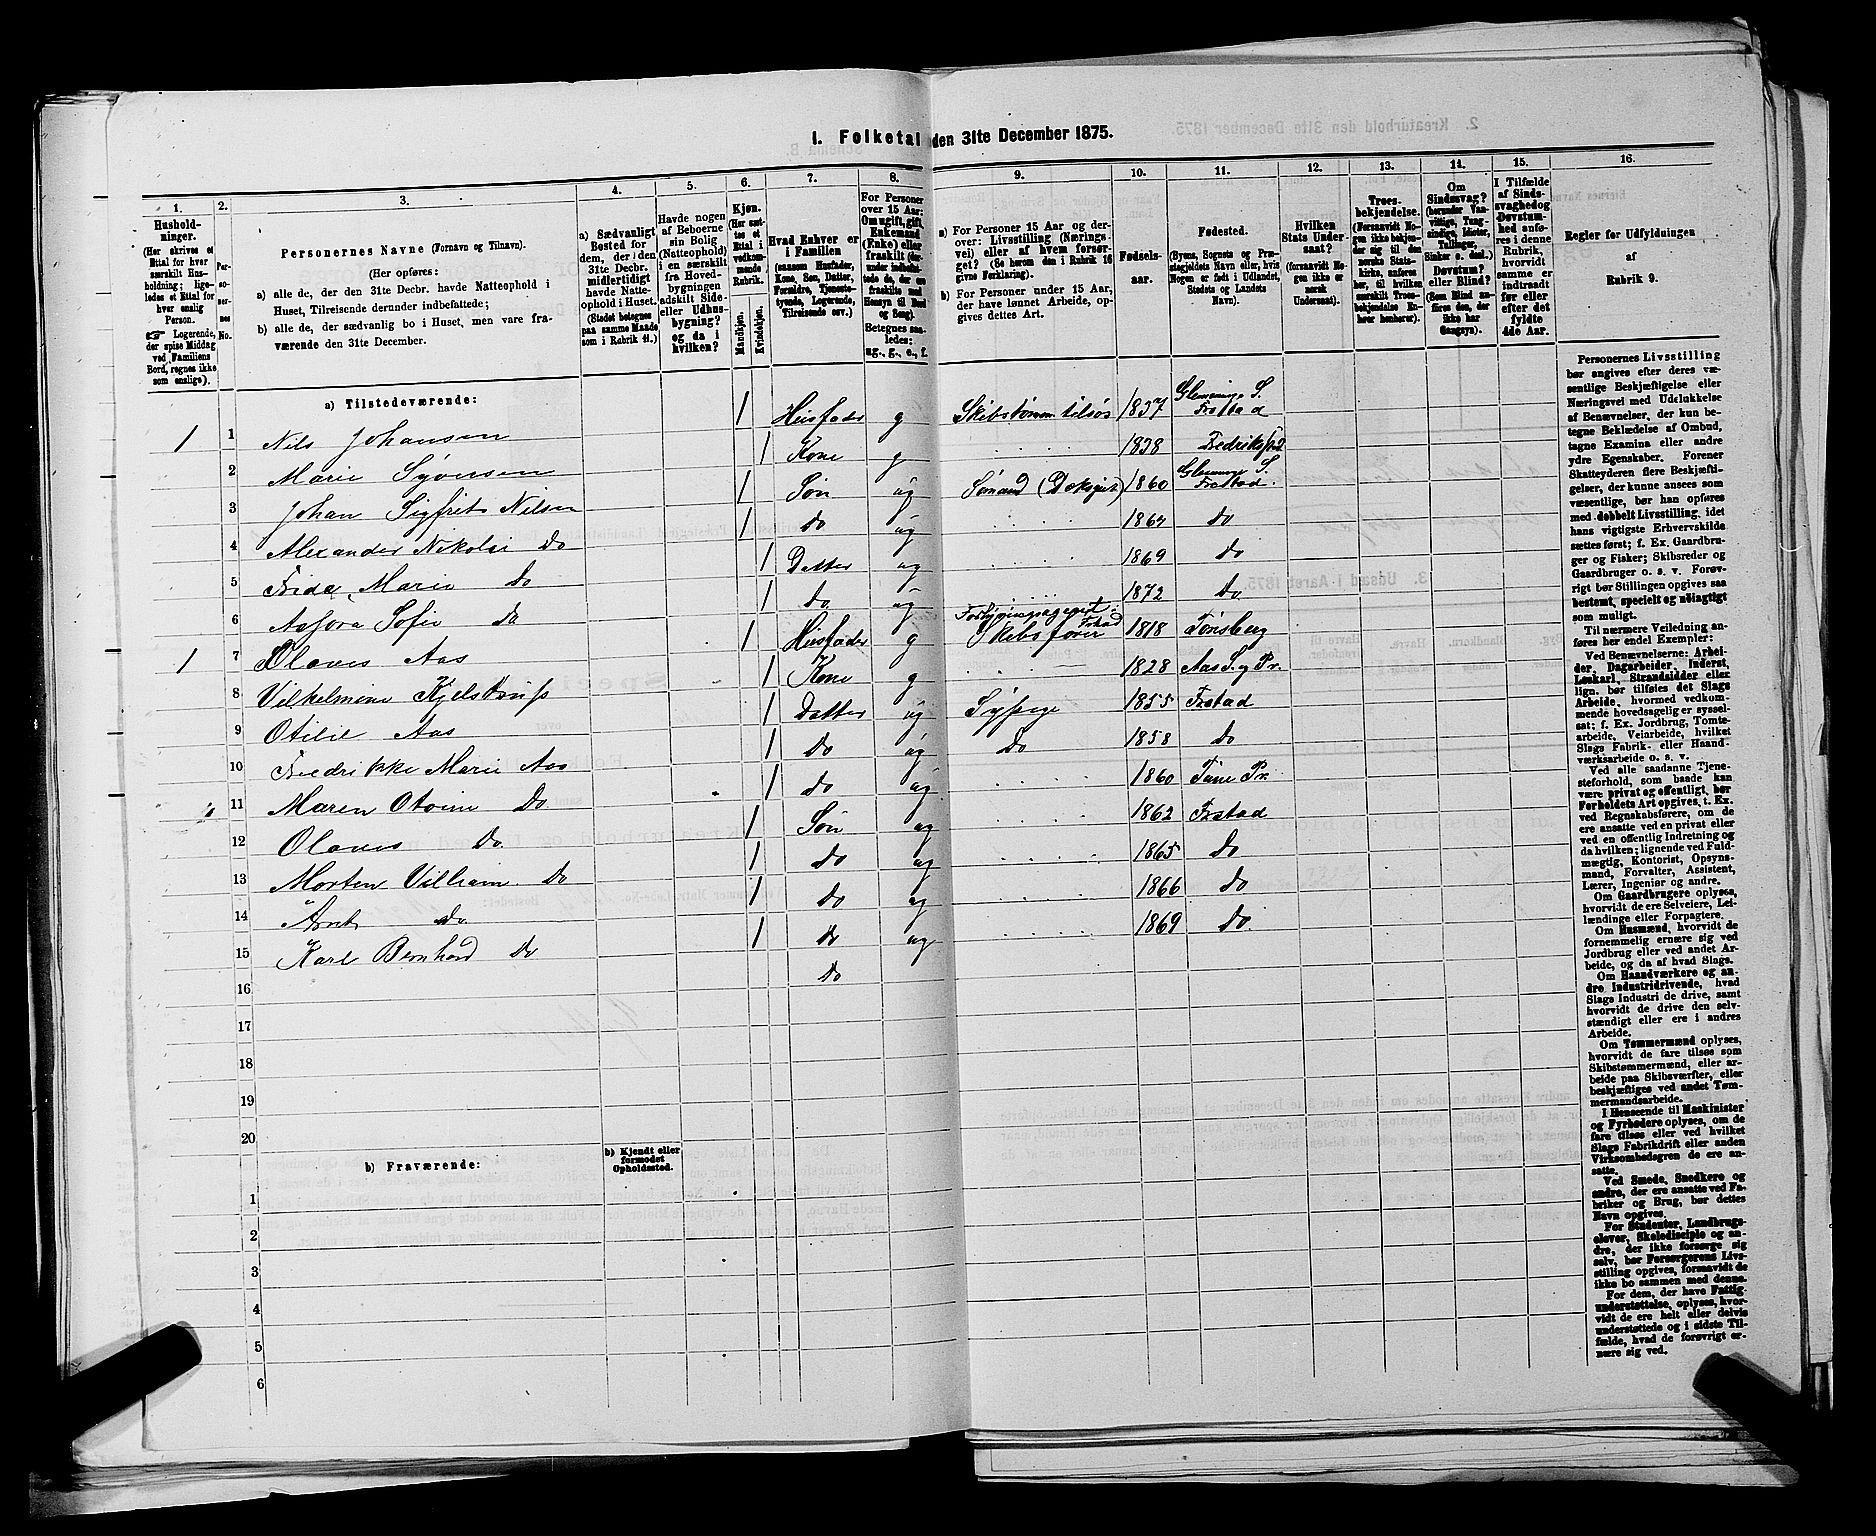 1. Folketal den 31te December 1875.
1. 2. 3. 4. 5. 6. 7. 8. 9. 10. 11. 12. 13. 14. 15. 16.
Hushold-
ninger.
(Her skrives et
Ettal for hver
særskilt Hus-
holdning; lige-
ledes et Ettal for
hver enslig
Person.
☞ Logerende,
der spise Middag
ved Familiens
Bord, regnes ikke
som enslige).
Per-
so-
ner-
nes
No.
Personernes Navne (Fornavn og Tilnavn).
(Her opføres:
a) alle de, der den 31te Decbr. havde Natteophold i
Huset, Tilreisende derunder indbefattede;
b) alle de, der sædvanlig bo i Huset, men vare fra-
værende den 31te December.
a) Sædvanligt
Bosted for
dem, der den
31te Decbr.
midlertidigt
havde Natte-
ophold i Huset.
(Stedet betegnes
paa samme Maade
som i Rubrik 11.)
Havde nogen
af Beboerne
sin Bolig
(Natteophold)
i en særskilt
fra Hoved-
bygningen
adskilt Side-
eller Udhus-
bygning?
og da i
hvilken?
Kjøn.
(Her sæt-
tes et
Ettal i
vedkom-
mende
Rubrik.
Mandkjøn.
Kvindekjøn.
Hvad Enhver er
i Familien
(saasom Husfader,
Kone, Søn, Datter,
Forældre, Tjeneste-
tyende, Logerende,
Tilreisende osv.)
For Personer
over 15 Aar:
Om ugift, gift
Enkemand
(Enke) eller
fraskilt
Betegnes saa-
ledes:
ug., g., e., f.
a) For Personer 15 Aar og der-
over: Livsstilling (Nærings-
vei) eller af hvem forsør-
get? (Se herom den i Rubrik 16
givne Forklaring).
b) For Personer under 15 Aar,
der have lønnet Arbeide, op-
gives dettes Art.
Fødsels-
aar.
Fødested.
(Byens, Sognets og Præ-
stegjeldets Navn eller, hvis
Nogen er født i Udlandet,
Stedets og Landets
Navn).
Hvilken
Stats Under-
saat?
(forsaavidt No-
gen ikke er
norsk
Undersaat).
Troes-
bekjendelse.
(Forsaavidt No-
gen ikke bekjen-
der sig til den
norske Stats-
kirke, anføres
her, til hvilken
særskilt Troes-
bekjendelse En-
hver henhører).
Om
Sindssvag?
(herunder Van-
vittige, Tung-
sindige, Idioter,
Tullinger,
Sinker o. desl.)
Døvstum?
eller Blind?
(Som Blind an-
føres den, der
ikke har
Gangsyn).
I Tilfælde
af Sinds-
svaghed og
Døvstum-
hed anfø-
res i denne
Rubrik,
hvorvidt
samme er
indtraadt
før eller
efter det
fyldte
4de Aar.
Regler for Udfyldningen
af
Rubrik 9.
a) Tilstedeværende:
1 1 Nils Johansen 1 Husfader g Skibstømm tilsøs 1837 Glemminge S. Frstad
2 Marie Syversen 1 Kone g 1838 Fredriksstad
3 Johan Sigfrits Nilsen 1 Søn ug Sømand (Doksgut) 1860 Glemminge S. Frstad.
4 Alexander Nikolai Do 1 do ug 1864 do
5 Frida Marie Do 1 Datter ug 1869 do
6 Aafora Sofie Do 1 do ug 1872 do
1 7 Olaves Aas 1 Husfader g Skibsfører 1818 Tønsberg
8 Vilhelmine Kjelstrup 1 Kone g 1828 Aas S. g Pr.
9 Otilie Aas 1 Datter ug Sypige 1855 Frstad
10 Fredrikke Marie Aas 1 Do ug Do 1858 do
11 Maren Otovine Do 1 do ug 1860 Tune Pr.
12 Olaves Do 1 Søn ug 1862 Frstad
13 Morten Villiam Do 1 do ug 1865 do
14 Arnt do 1 do ug 1866 do
15 Karl Bernhard Do 1 do ug 1869 do
16 Do
17
18
19
20
b) Fraværende:
b) Kjendt eller
formodet
Opholdssted.
1
2
3
4
5
6
Personernes Livsstilling
bør angives efter deres væ-
sentlige Beskjæftigelse eller
Næringsvei med Udelukkelse
af Benævnelser, der kun be-
tegne Beklædelse af Ombud,
tagne Examina eller andre
ydre Egenskaber. Forener
Skatteyderen flere Beskjæfti-
gelser, der kunne ansees som
væsentlige, bør han opføres
med dobbelt Livsstilling, idet
hans vigtigste Erhvervskilde
sættes først; f. Ex. Gaardbru-
ger og Fisker; Skibsreder og
Gaardbruger o. s. v. Forøv-
rigt bør Stillingen opgives saa
bestemt, specielt og nøiagtigt
som muligt.
Til nærmere Veiledning an-
føres her endel Exempler:
Ved Benævnelserne: Arbei-
der, Dagarbeider, Inderst,
Løskarl, Strandsidder eller
lign. bør tilføies det Slags
Arbeide, hvormed vedkom-
mende hovedsagelig er syssel-
sat; f. Ex. Jordbrug, Tomte-
arbeide, Veiarbeide, hvilket
Slags Fabrik- eller Haand-
værksarbeide o. s. v.
Ved alle saadanne Tjene-
steforhold, som baade kan
være privat og offentligt, bør
Forholdets Art opgives, t. Ex.
ved Regnskabsførere, om de
ere ansatte ved en privat eller
ved en offentlig Indretning og
da hvilken; lignende ved Fuld-
mægtig, Kontorist, Opsyns-
mand, Forvalter, Assistent,
Lærer, Ingeniør og andre.
Om Gaardbrugere oplyses,
hvorvidt de ere Selveiere, Lei-
lændinge eller Forpagtere.
Om Husmænd, hvorvidt de
fornemmelig ernære sig ved
Jordbrug eller ved andet Ar-
beide, og da af hvad Slags.
Om Haandværkere og an-
dre Industridrivende, hvad
Slags Industri de drive, samt
hvorvidt de drive den selv-
stændigt eller ere i andres
Arbeide.
Om Tømmermænd oplyses,
hvorvidt de fare tilsøs som
Skibstømmermænd, eller ar-
beide paa Skibsværfter, eller
beskjæftiges ved andet Tøm-
mermandsarbeide.
I Henseende til Maskinister
og Fyrbødere oplyses, om de
fare tilsøs eller ved hvilket
Slags Fabrikdrift eller anden
Virksomhedsgren de ere an-
satte.
Ved Smede, Snedkere og
andre, der ere ansatte ved Fa-
briker og Brug, bør dettes
Navn opgives.
For Studenter, Landbrugs-
elever, Skoledisciple og an-
dre, der ikke forsørge sig
selv, bør Forsørgerens Livs-
stilling opgives, forsaavidt de
ikke bo sammen med denne.
For dem, der have Fattig-
understøttelse, oplyses, hvor-
vidt de ere helt eller delvis
understøttede og i sidste Til-
fælde, hvad de forøvrigt er-
nære sig ved.